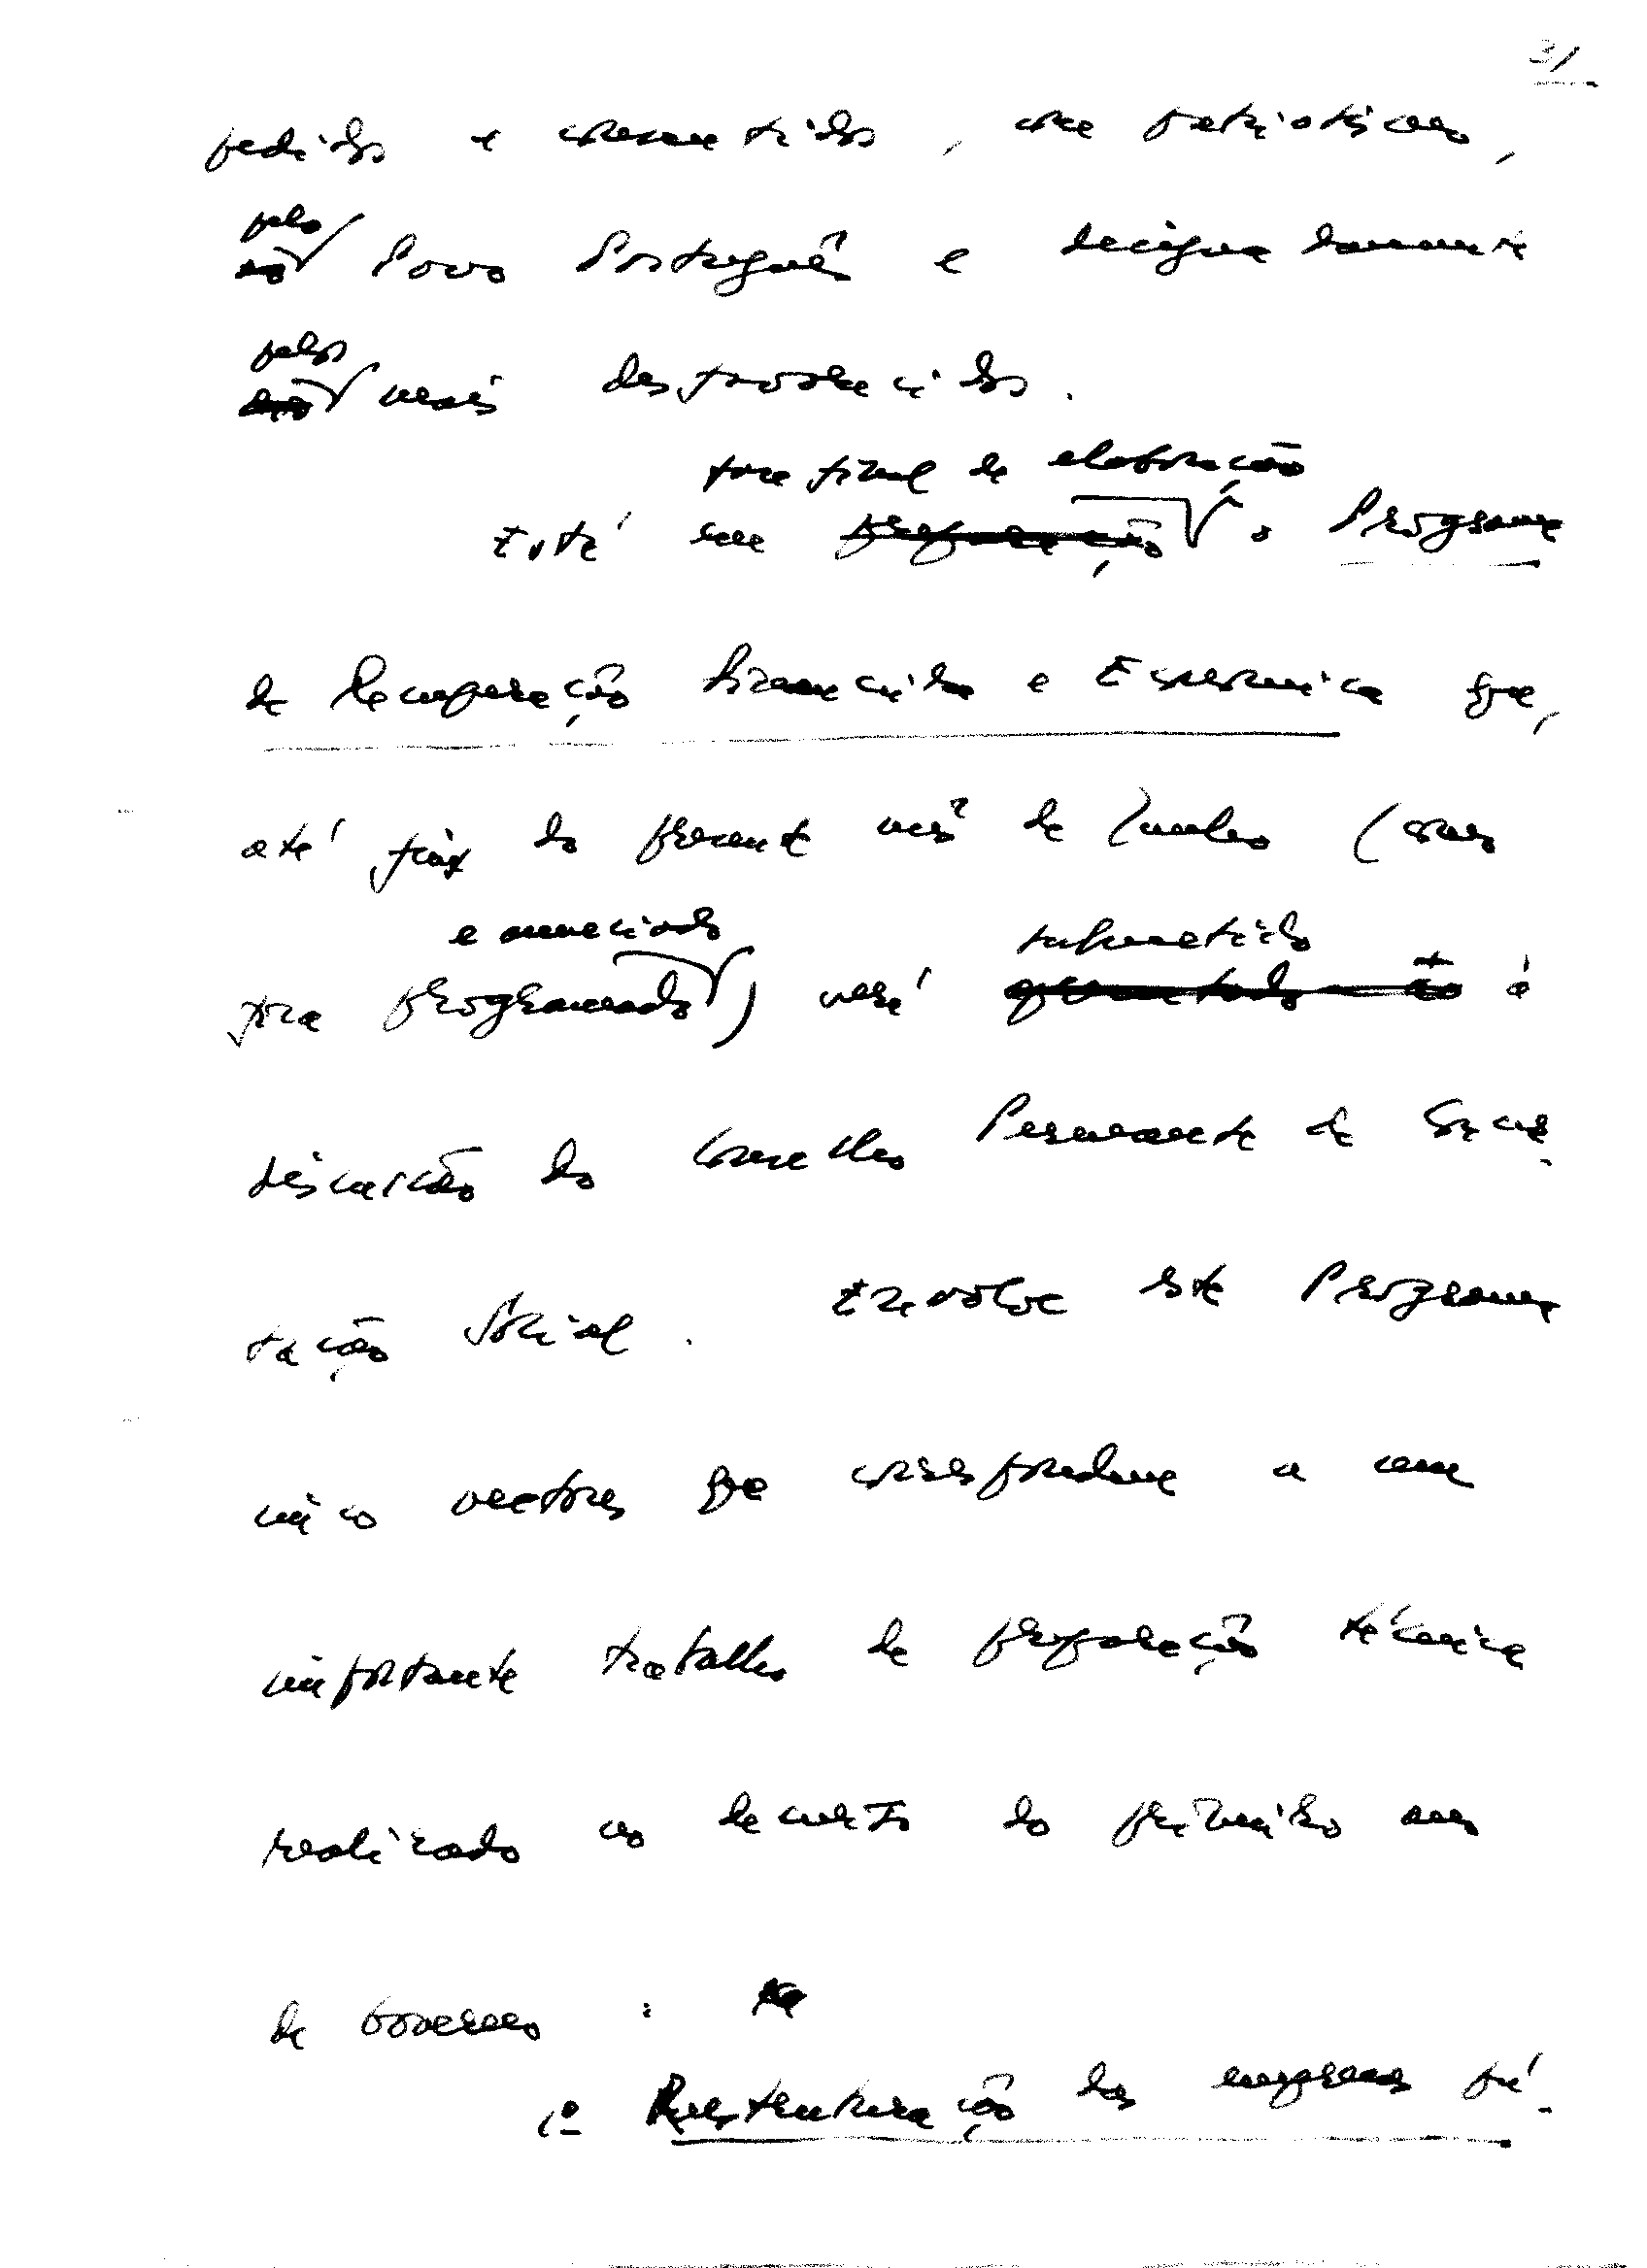 3/
pedidos e consentidos, com patriotismo,
pelo
ao Povo Português e designadamente
pelos
aos mais desfavorecidos.
fase final de elaboração
Está em preparação o Programa
de Recuperação Financeira e Económica que,
até fins do presente mês de Junho (como
e anunciado
fora programado) será submetido
apresentado ao à
discussão do Conselho Permanente de Concer-
tação Social. Envolve este Programa
cinco vectores que correspondem a um
importante trabalho de preparação técnica
realizado no decurso do primeiro ano
de Governo:
1º Reestruturação das empresas pú-